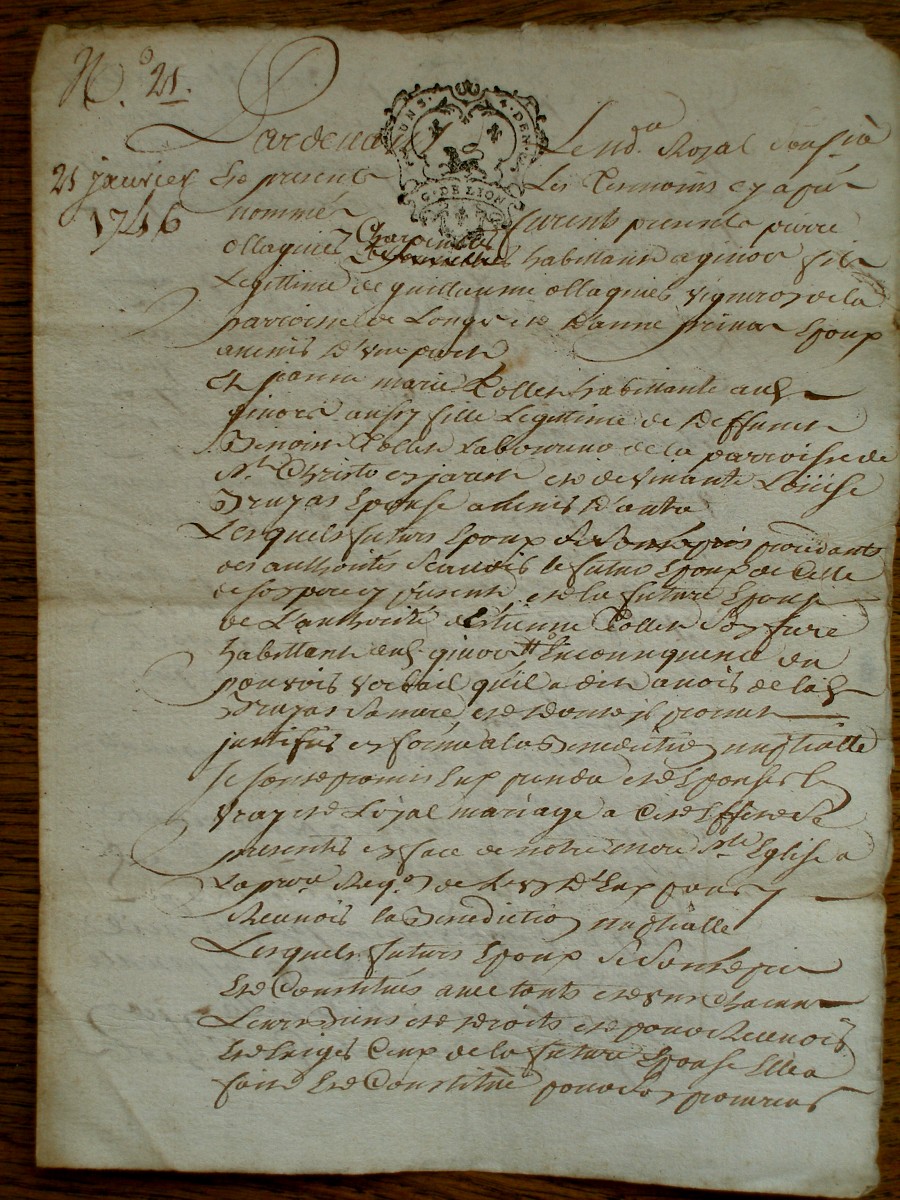 N.° 21.
Pardevant Le No.re Royal Sousig.né
21 janvier
1746
Et presents Les Temoins cy apres
UNS. 4. DEN.
G. DE LYON
nommés furent presents pierre
ollagnier Charpentier habittant a givors fils
Legittime de guillaume ollagnier vigneron de la
parroisse de Longe et d'anne prinas Epoux
avenir d'une part
Et jeanne marie Collet habittante aud.
givors aussy fille Legittime de deffunt
Benoist Collet Laboureur de la parroisse de
St. Christo en jarest et de vivante Loüise
Drujas Epouse avenir d'autre
Lesquels futurs Epoux procedants
des authorités scavoir le futur Epoux de Celle
de son pere present et la future Epouse
de L'authorité d'Etienne Collet son frere
habittant aud. givors En consequence du
pouvoir verbail qu'il a dit avoir de lad.
Drujas sa mere et dont il promet
justifier en forme a la Benediction nuptialle
Se sont promis Eux prendre et Epouser En
vray et Loyal mariage a Cet Effet de se
presenter en face de notre mere Ste. Eglise a
La pre.re Req.on de L'un D'Eux pour y
Recevoir la Benediction nuptialle
Lesquels futurs Epoux Se Sont
Et Constitués avec touts et uns Chacuns
Leurs Biens et droits et pour Recevoir
Et Exiger Ceux de la future Epouse Elle a
fait Et Constitué pour son procureur